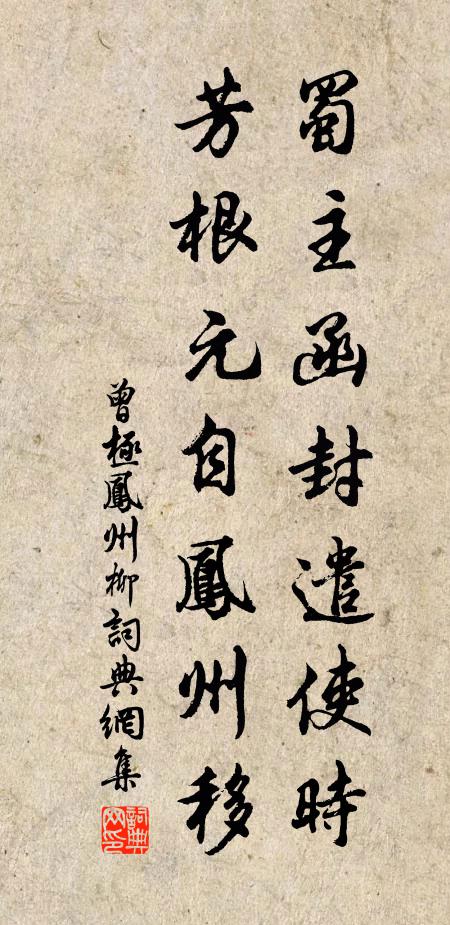 蜀主函封遣使時
芳根元自鳳州移
曾極鳳州柳詞典網集
詞典網印